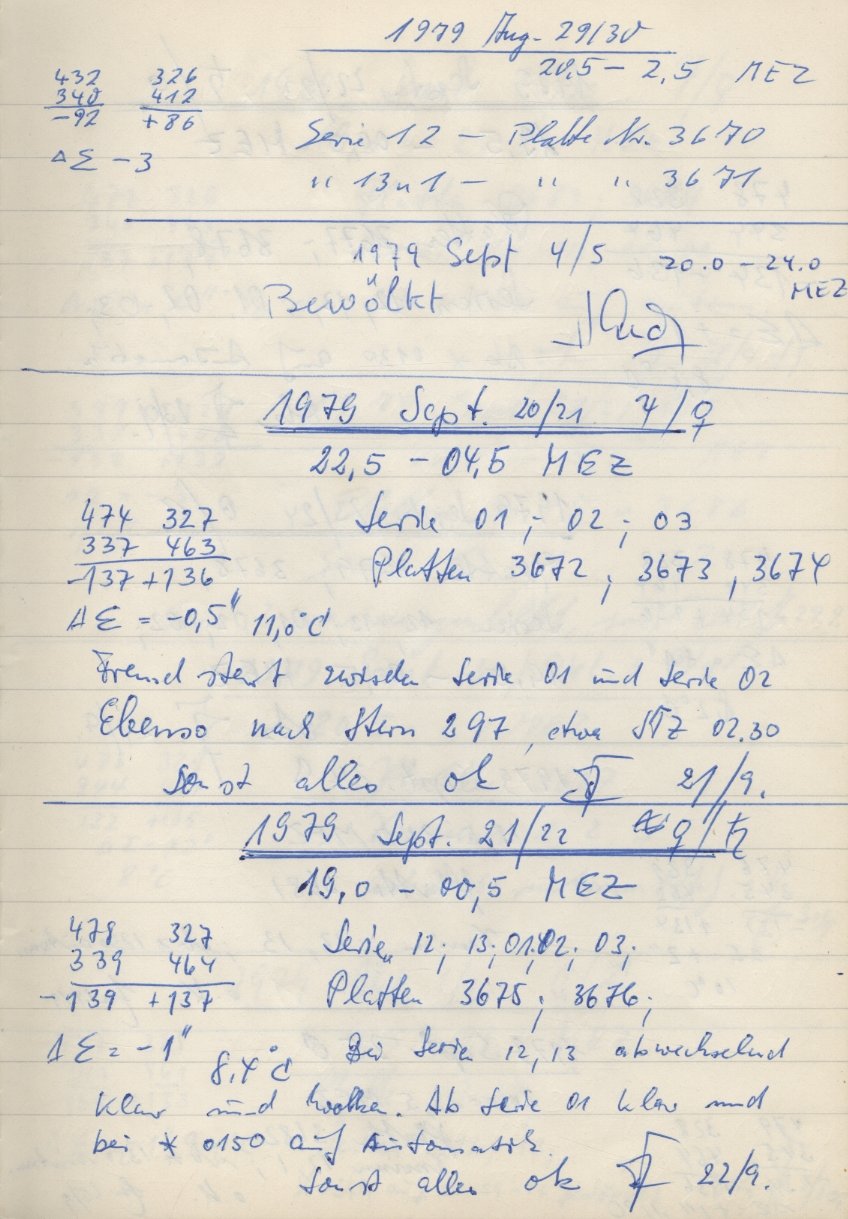 1979 Aug. 29/30
20,5 – 2,5 MEZ
432 326
340 412
-92 +86
Serie 12 – Platte Nr. 3670
ΔΣ -3
" 13 u 1 – " " 3671
1979 Sept 4/5 20.0 – 24.0
MEZ
Bewölkt
1979 Sept. 20/21 ♃/♀
22,5 – 04,5 MEZ
474 327
337 463
-137 +136
Serie 01 ; 02 ; 03
Platten 3672 ; 3673 , 3674
ΔΣ = -0,5" 11,0°C
Fremd start zwischen Serie 01 und Serie 02
Ebenso nach Stern 297, etwa STZ 02.30
Sonst alles ok 21/9.
1979 Sept. 21/22 ♀/♄
19,0 – 00,5 MEZ
478 327
339 464
-139 +137
Serien 12; 13; 01; 02; 03;
Platten 3675 ; 3676 ;
ΔΣ = -1" 8,4°C
Bei Serien 12, 13 abwechselnd
klar und Wolken. Ab Serie 01 klar und
bei * 0150 auf Automatik.
Sonst alles ok 22/9.